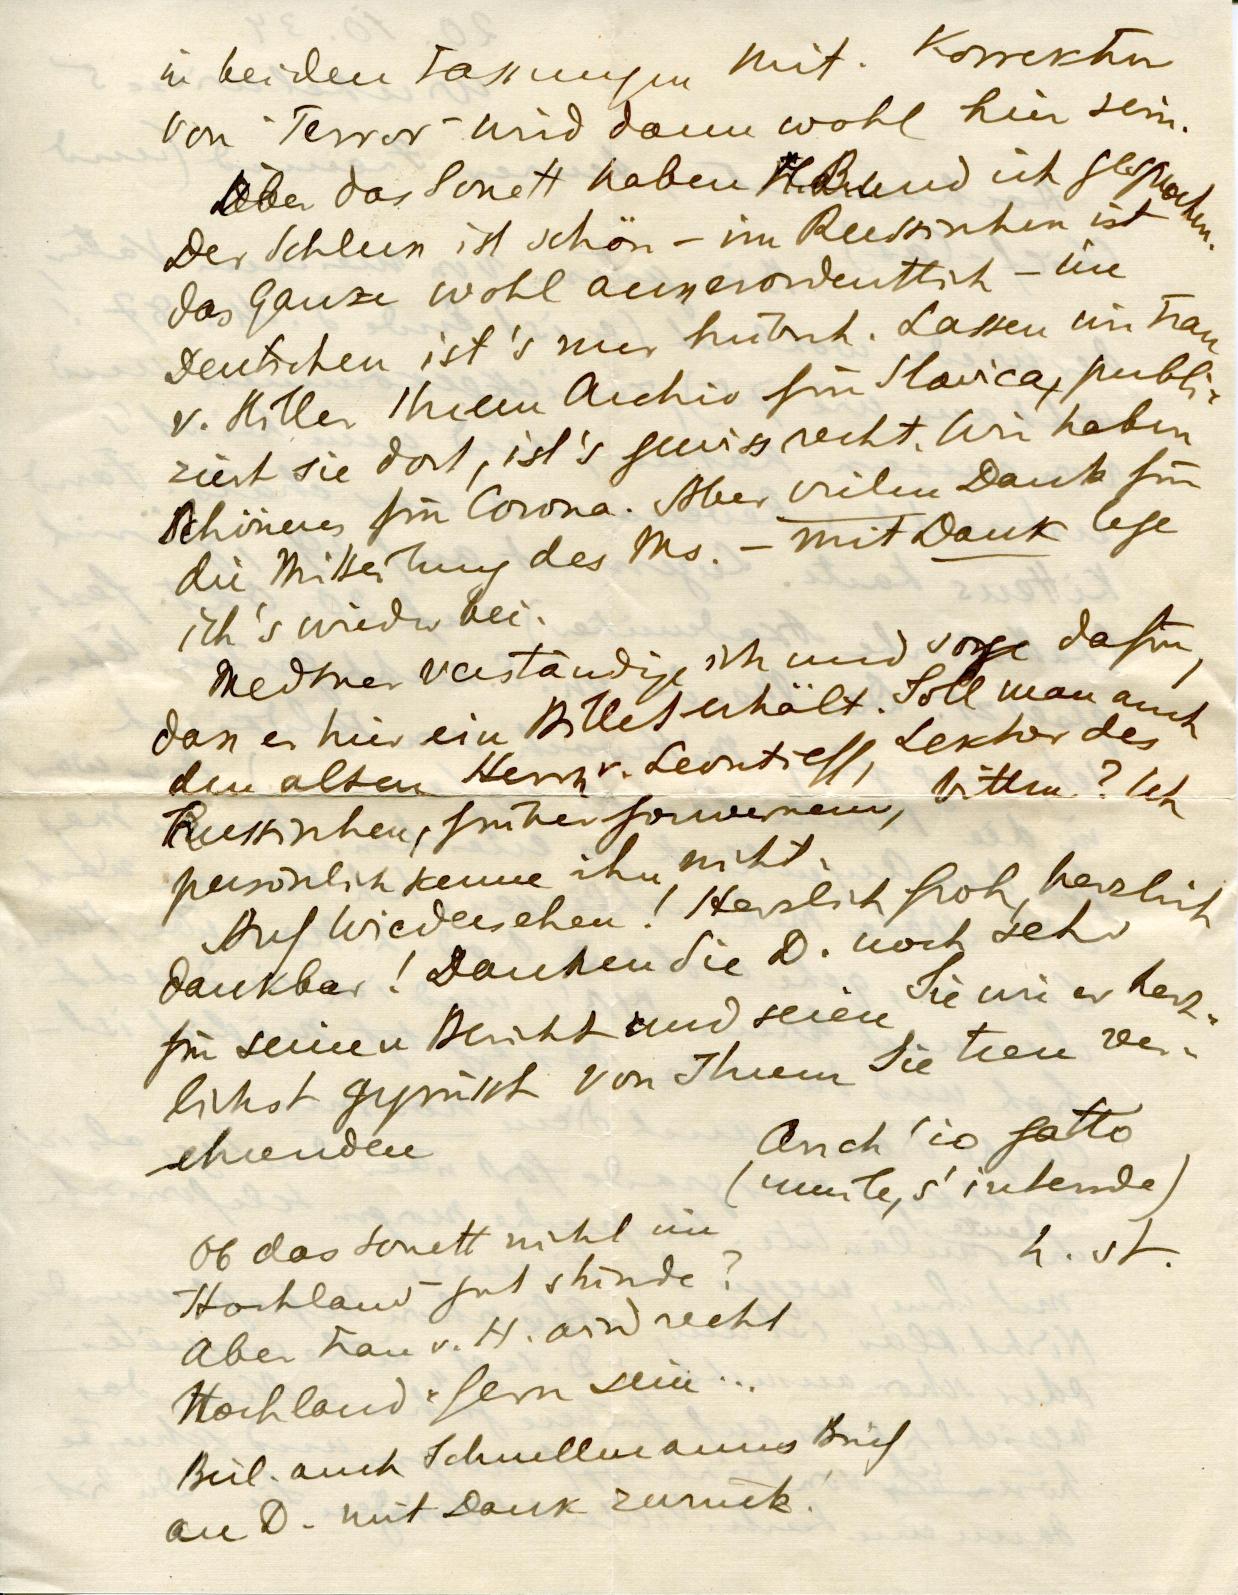 in beiden Fassungen mit. Korrektur
von "Terror" wird dann wohl hier sein.
Über das Sonett haben H. B. und ich gesprochen.
Der Schluss ist schön – im Russischen ist
das Ganze wohl ausserordentlich – im
Deutschen ist's nur hübsch. Lassen wir Frau
v. Hiller Ihrem Archiv für Slavica, publi-
ziert sie dort, ist's gewiss recht. Wir haben
Schöneres für Corona. Aber vielen Dank für
die Mitteilung des Ms. – mit Dank lege
ich's wieder bei.
Medtner verständige ich und sorge dafür,
dass er hier ein Billet erhält. Soll man auch
den alten Herrn v. Leontieff, Lektor des
Russischen, früher Gouverneur, bitten? Ich
persönlich kenne ihn nicht.
Auf Wiedersehen! Herzlich froh, herzlich
dankbar! Danken Sie D. noch sehr
für seinen Bericht und seien Sie wie er herz-
lichst gegrüsst von Ihrem Sie treu ver-
ehrenden
Anch'io gatto
(umile, s'intende)
h. st.
Ob das Sonett nicht im
Hochland gut stünde?
Aber Frau v. H. wird recht
Hochland-fern sein...
Beil. auch Schnellmanns Brief
an D. mit Dank zurück!